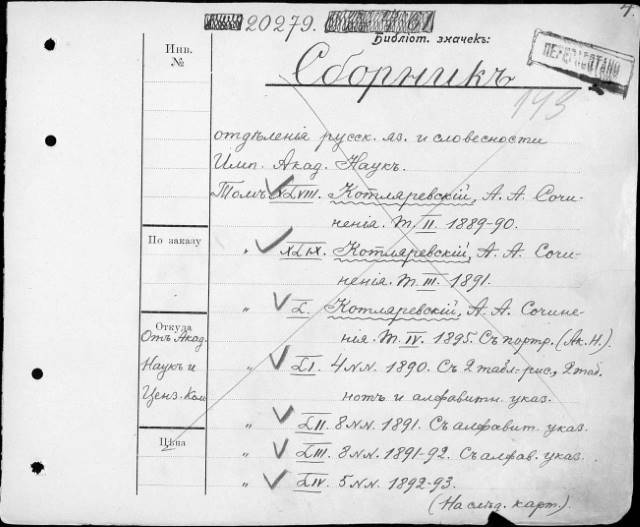 20279.
Библiот. значек:
Инв.
№
ПЕРЕПЕЧАТАНО
Сборникъ
193
отдѣленія русск. яз. и словесности
Имп. Акад. Наукъ.
Томъ XLVIII. Котляревскій, А. А. Сочи-
ненія. Т. II. 1889-90.
По заказу
„ XLIX. Котляревскій, А. А. Сочи-
ненія. Т. III. 1891.
„ L. Котляревскій, А. А. Сочине-
нія. Т. IV. 1895. Съ портр. (Ак. Н.).
Откуда
Отъ Акад.
Наукъ и
Ценз. Ком
„ LI. 4 NN. 1890. Съ 2 табл. рис., 2 таб.
нотъ и алфавитн. указ.
„ LII. 8 NN. 1891. Съ алфавит. указ.
Цѣна
„ LIII. 8 NN. 1891-92. Съ алфав. указ.
„ LIV. 5 NN. 1892-93.
(На слѣд. карт.).